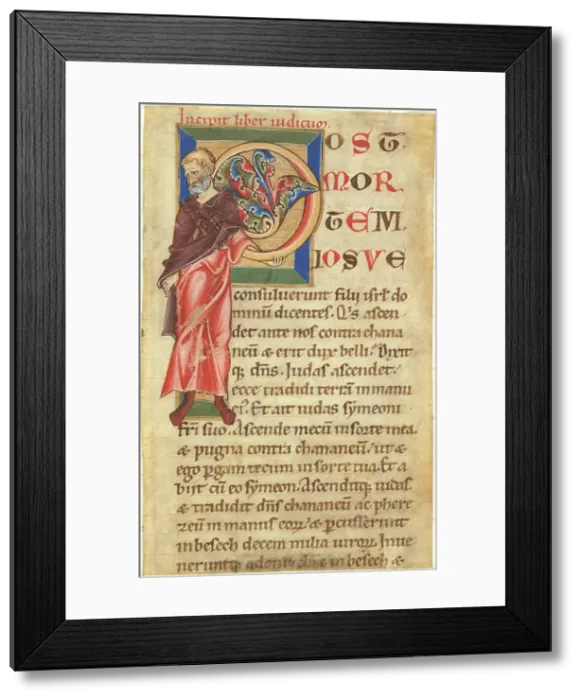 Incipit liber iudicum.
POST
MOR
TEM
IOSVE
consuluerunt filii isrł do
minū dicentes. Qͥs ascen
det ante nos contra chana
neū & erit dux belli. Dixit
qꝫ dn̄s. Iudas ascendet.
ecce tradidi terrā in manu
eiꝰ. Et ait iudas symeoni
fr̄i suo. Ascende mecū in sorte mea
& pugna contra chananeū. ut &
ego ꝑgam tecum in sorte tua. Et a
biit cū eo symeon. Ascenditqꝫ iudas
& tradidit dn̄s chananeū ac phere
zeū in manus eoꝝ. & ꝑcusserunt
in besech decem milia uiroꝝ. Inue
neruntqꝫ adoni in besech &